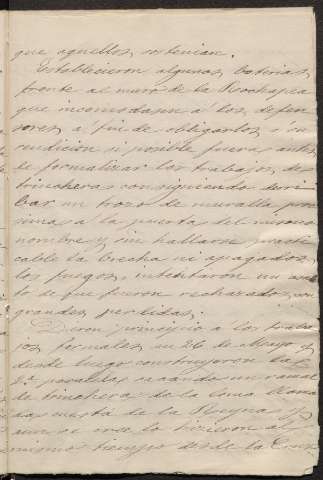 que aquellos sostenian.
Establecieron algunas baterias
frente al muro de la Rochapea
que incomodasen a los defen
sores, a fin de obligarlos a su
rendicion si posible fuera antes
de formalizar los trabajos de
trincheras consiguiendo derri
bar un trozo de muralla pro
xima a la puerta del mismo
nombre y sin hallarse practi
cable la brecha ni apagados
los fuegos, intentaron un asal
to de que fueron rechazados con
grandes perdidas.
Dieron principio a los traba
jos formales en 26 de Mayo y
desde luego construyeron la
2ª paralela sacando un ramal
de trinchera de la loma llama
da cuesta de la Reyna y
al
mismo tiempo desde la Cruz